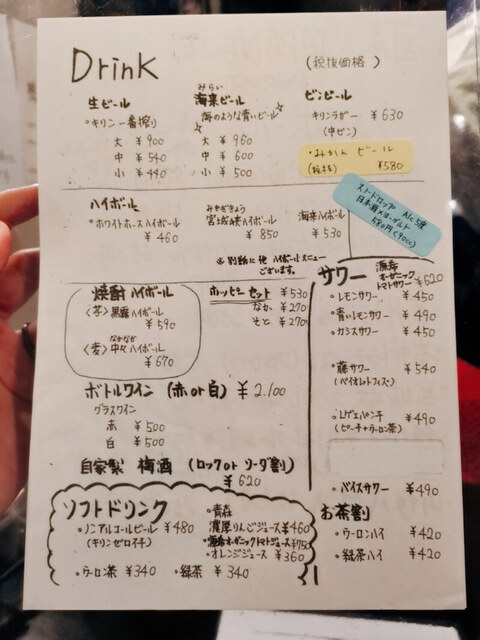 Drink
(税後価格)
生ビール
・キリン一番搾り
大 ¥900
中 ¥540
小 ¥440
みらい
海来ビール
海のような青いビール
大 ¥960
中 ¥600
小 ¥500
ビンビール
キリンラガー ¥630
(中ビン)
・みかんビール
(瓶)
¥580
スノードロップ Alc5度
日本酒×ヨーグルト
550円(90cc)
ハイボール
・ホワイトホースハイボール
¥460
みやぎきょう
宮城峡ハイボール
¥850
海来ハイボール
¥530
※別紙に他ハイボールメニュー
ございます。
焼酎ハイボール
〈芋〉黒霧ハイボール
¥590
なかなか
〈麦〉中々ハイボール
¥670
ホッピーセット ¥530
なか ¥270
そと ¥270
サワー
オーガニック
トマトサワー ¥620
・レモンサワー ¥450
・青いレモンサワー ¥490
・カシスサワー ¥450
・藤サワー ¥540
(バイオレットフィズ)
・レゲエパンチ ¥490
(ピーチ+ウーロン茶)
・バイスサワー ¥490
ボトルワイン (赤or白) ¥2.100
グラスワイン
赤 ¥500
白 ¥500
自家製 梅酒 (ロックorソーダ割)
¥620
ソフトドリンク
・ノンアルコールビール ¥480
(キリンゼロイチ)
・ウーロン茶 ¥340
・緑茶 ¥340
・青森
濃厚りんごジュース ¥460
オーガニックトマトジュース ¥750
・オレンジジュース ¥360
お茶割
・ウーロンハイ ¥420
・緑茶ハイ ¥420